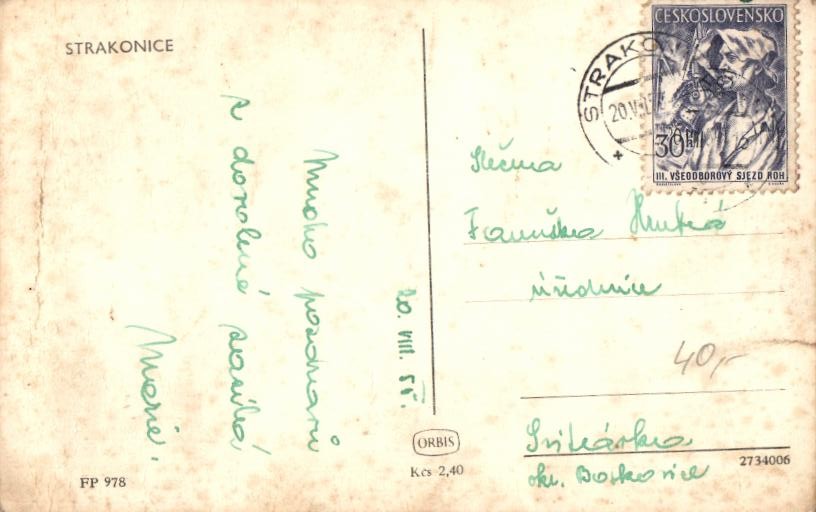 STRAKONICE
20. VIII. 55.
Mnoho pozdravů
z dovolené zasílá
Marie.
FP 978
ORBIS
Kčs 2,40
ČESKOSLOVENSKO
30 h
III. VŠEODBOROVÝ SJEZD ROH
STRAKO
20.V
Slečna
Františka
úřednice
40,-
Svitávka
okr. Boskovice
2734006